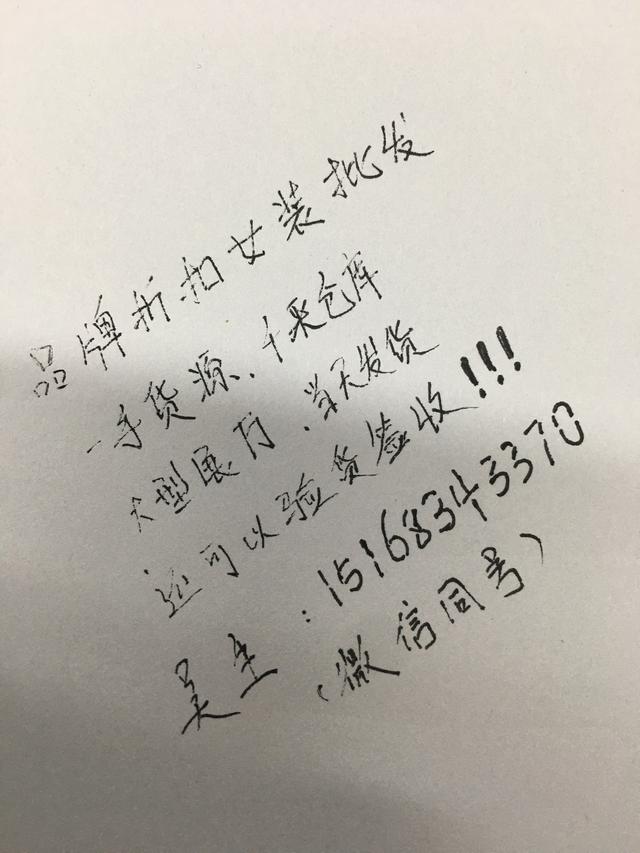 品牌折扣女装批发
一手货源、千米仓库
大型展厅、当天发货
还可以验货签收!!!
吴生:15168343370
(微信同号)